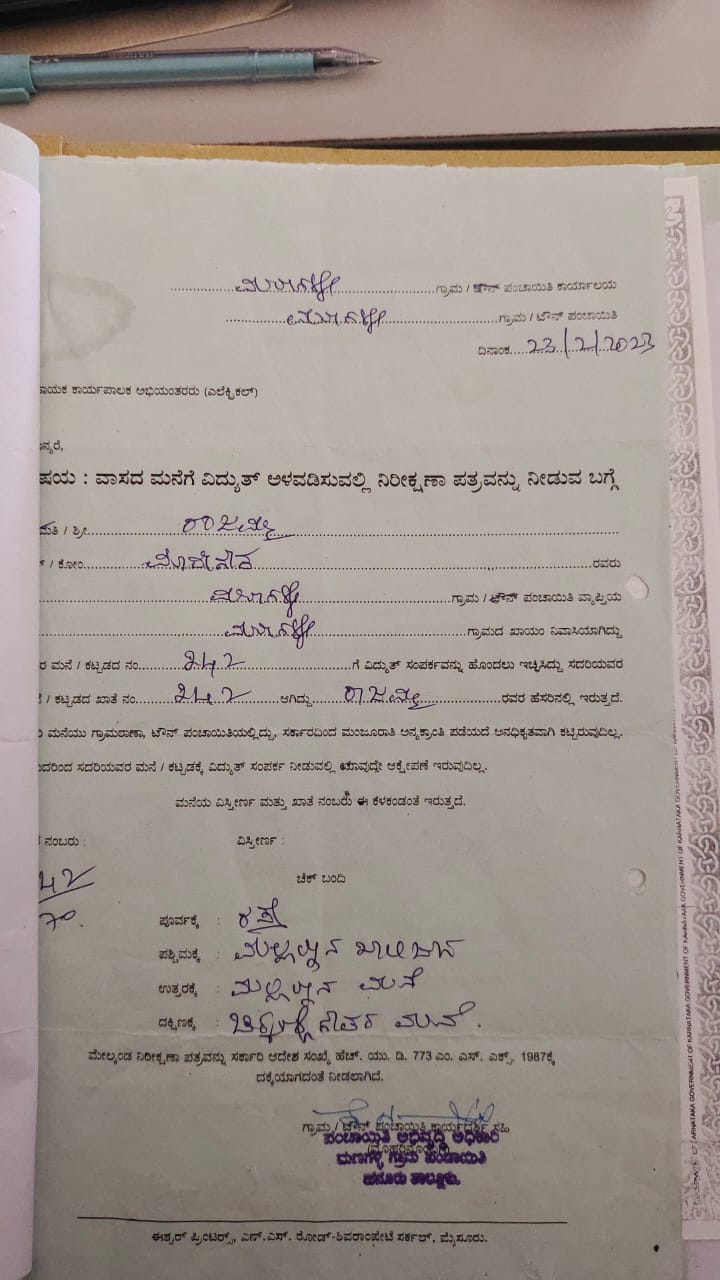 ಮಣಗಳ್ಳಿ ಗ್ರಾಮ / ಟೌನ್ ಪಂಚಾಯಿತಿ ಕಾರ್ಯಾಲಯ
ಮಣಗಳ್ಳಿ ಗ್ರಾಮ / ಟೌನ್ ಪಂಚಾಯಿತಿ
ದಿನಾಂಕ 23/2/2023
ಾಯಕ ಕಾರ್ಯಪಾಲಕ ಅಭಿಯಂತರರು (ಎಲೆಕ್ಟ್ರಿಕಲ್)
ನ್ಯರೆ,
ಷಯ : ವಾಸದ ಮನೆಗೆ ವಿದ್ಯುತ್ ಅಳವಡಿಸುವಲ್ಲಿ ನಿರೀಕ್ಷಣಾ ಪತ್ರವನ್ನು ನೀಡುವ ಬಗ್ಗೆ
ಮತಿ / ಶ್ರೀ
/ ಕೋಂ ಮಾದೇಗೌಡ ರವರು
ಮಣಗಳ್ಳಿ ಗ್ರಾಮ / ಟೌನ್ ಪಂಚಾಯಿತಿ ವ್ಯಾಪ್ತಿಯ
ಮಣಗಳ್ಳಿ ಗ್ರಾಮದ ಖಾಯಂ ನಿವಾಸಿಯಾಗಿದ್ದು
ರ ಮನೆ / ಕಟ್ಟಡದ ನಂ 242 ಗೆ ವಿದ್ಯುತ್ ಸಂಪರ್ಕವನ್ನು ಹೊಂದಲು ಇಚ್ಚಿಸಿದ್ದು ಸದರಿಯವರ
/ ಕಟ್ಟಡದ ಖಾತೆ ನಂ 242 ಆಗಿದ್ದು ರವರ ಹೆಸರಿನಲ್ಲಿ ಇರುತ್ತದೆ.
ಮನೆಯು ಗ್ರಾಮಠಾಣಾ, ಟೌನ್ ಪಂಚಾಯಿತಿಯಲ್ಲಿದ್ದು, ಸರ್ಕಾರದಿಂದ ಮಂಜೂರಾತಿ ಅನ್ಯಕ್ರಾಂತಿ ಪಡೆಯದೆ ಅನಧಿಕೃತವಾಗಿ ಕಟ್ಟಿರುವುದಿಲ್ಲ.
ುದರಿಂದ ಸದರಿಯವರ ಮನೆ / ಕಟ್ಟಡಕ್ಕೆ ವಿದ್ಯುತ್ ಸಂಪರ್ಕ ನೀಡುವಲ್ಲಿ ಯಾವುದ್ದೇ ಆಕ್ಷೇಪಣೆ ಇರುವುದಿಲ್ಲ.
ಮನೆಯ ವಿಸ್ತೀರ್ಣ ಮತ್ತು ಖಾತೆ ನಂಬರು ಈ ಕೆಳಕಂಡಂತೆ ಇರುತ್ತದೆ.
ನಂಬರು : ವಿಸ್ತೀರ್ಣ :
42
ಚೆಕ್ ಬಂದಿ
70.
ಪೂರ್ವಕ್ಕೆ : ರಸ್ತೆ
ಪಶ್ಚಿಮಕ್ಕೆ : ಖಾಲಿ ಜಾಗ
ಉತ್ತರಕ್ಕೆ : ಮನೆ
ದಕ್ಷಿಣಕ್ಕೆ : ಮನೆ.
ಮೇಲ್ಕಂಡ ನಿರೀಕ್ಷಣಾ ಪತ್ರವನ್ನು ಸರ್ಕಾರಿ ಆದೇಶ ಸಂಖ್ಯೆ ಹೆಚ್. ಯು. ಡಿ. 773 ಎಂ. ಎಸ್. ಎಕ್ಸ್. 1987ಕ್ಕೆ
ದಕ್ಕೆಯಾಗದಂತೆ ನೀಡಲಾಗಿದೆ.
ಗ್ರಾಮ / ಟೌನ್ ಪಂಚಾಯಿತಿ ಕಾರ್ಯದರ್ಶಿ ಸಹಿ
ಪಂಚಾಯಿತಿ ಅಭಿವೃದ್ಧಿ ಅಧಿಕಾರಿ
ಮಣಗಳ್ಳಿ ಗ್ರಾಮ ಪಂಚಾಯಿತಿ
ಹನೂರು ತಾಲ್ಲೂಕು.
ಈಶ್ವರ್ ಪ್ರಿಂಟರ್ಸ್, ಎನ್.ಎಸ್. ರೋಡ್-ಶಿವರಾಂಪೇಟೆ ಸರ್ಕಲ್, ಮೈಸೂರು.